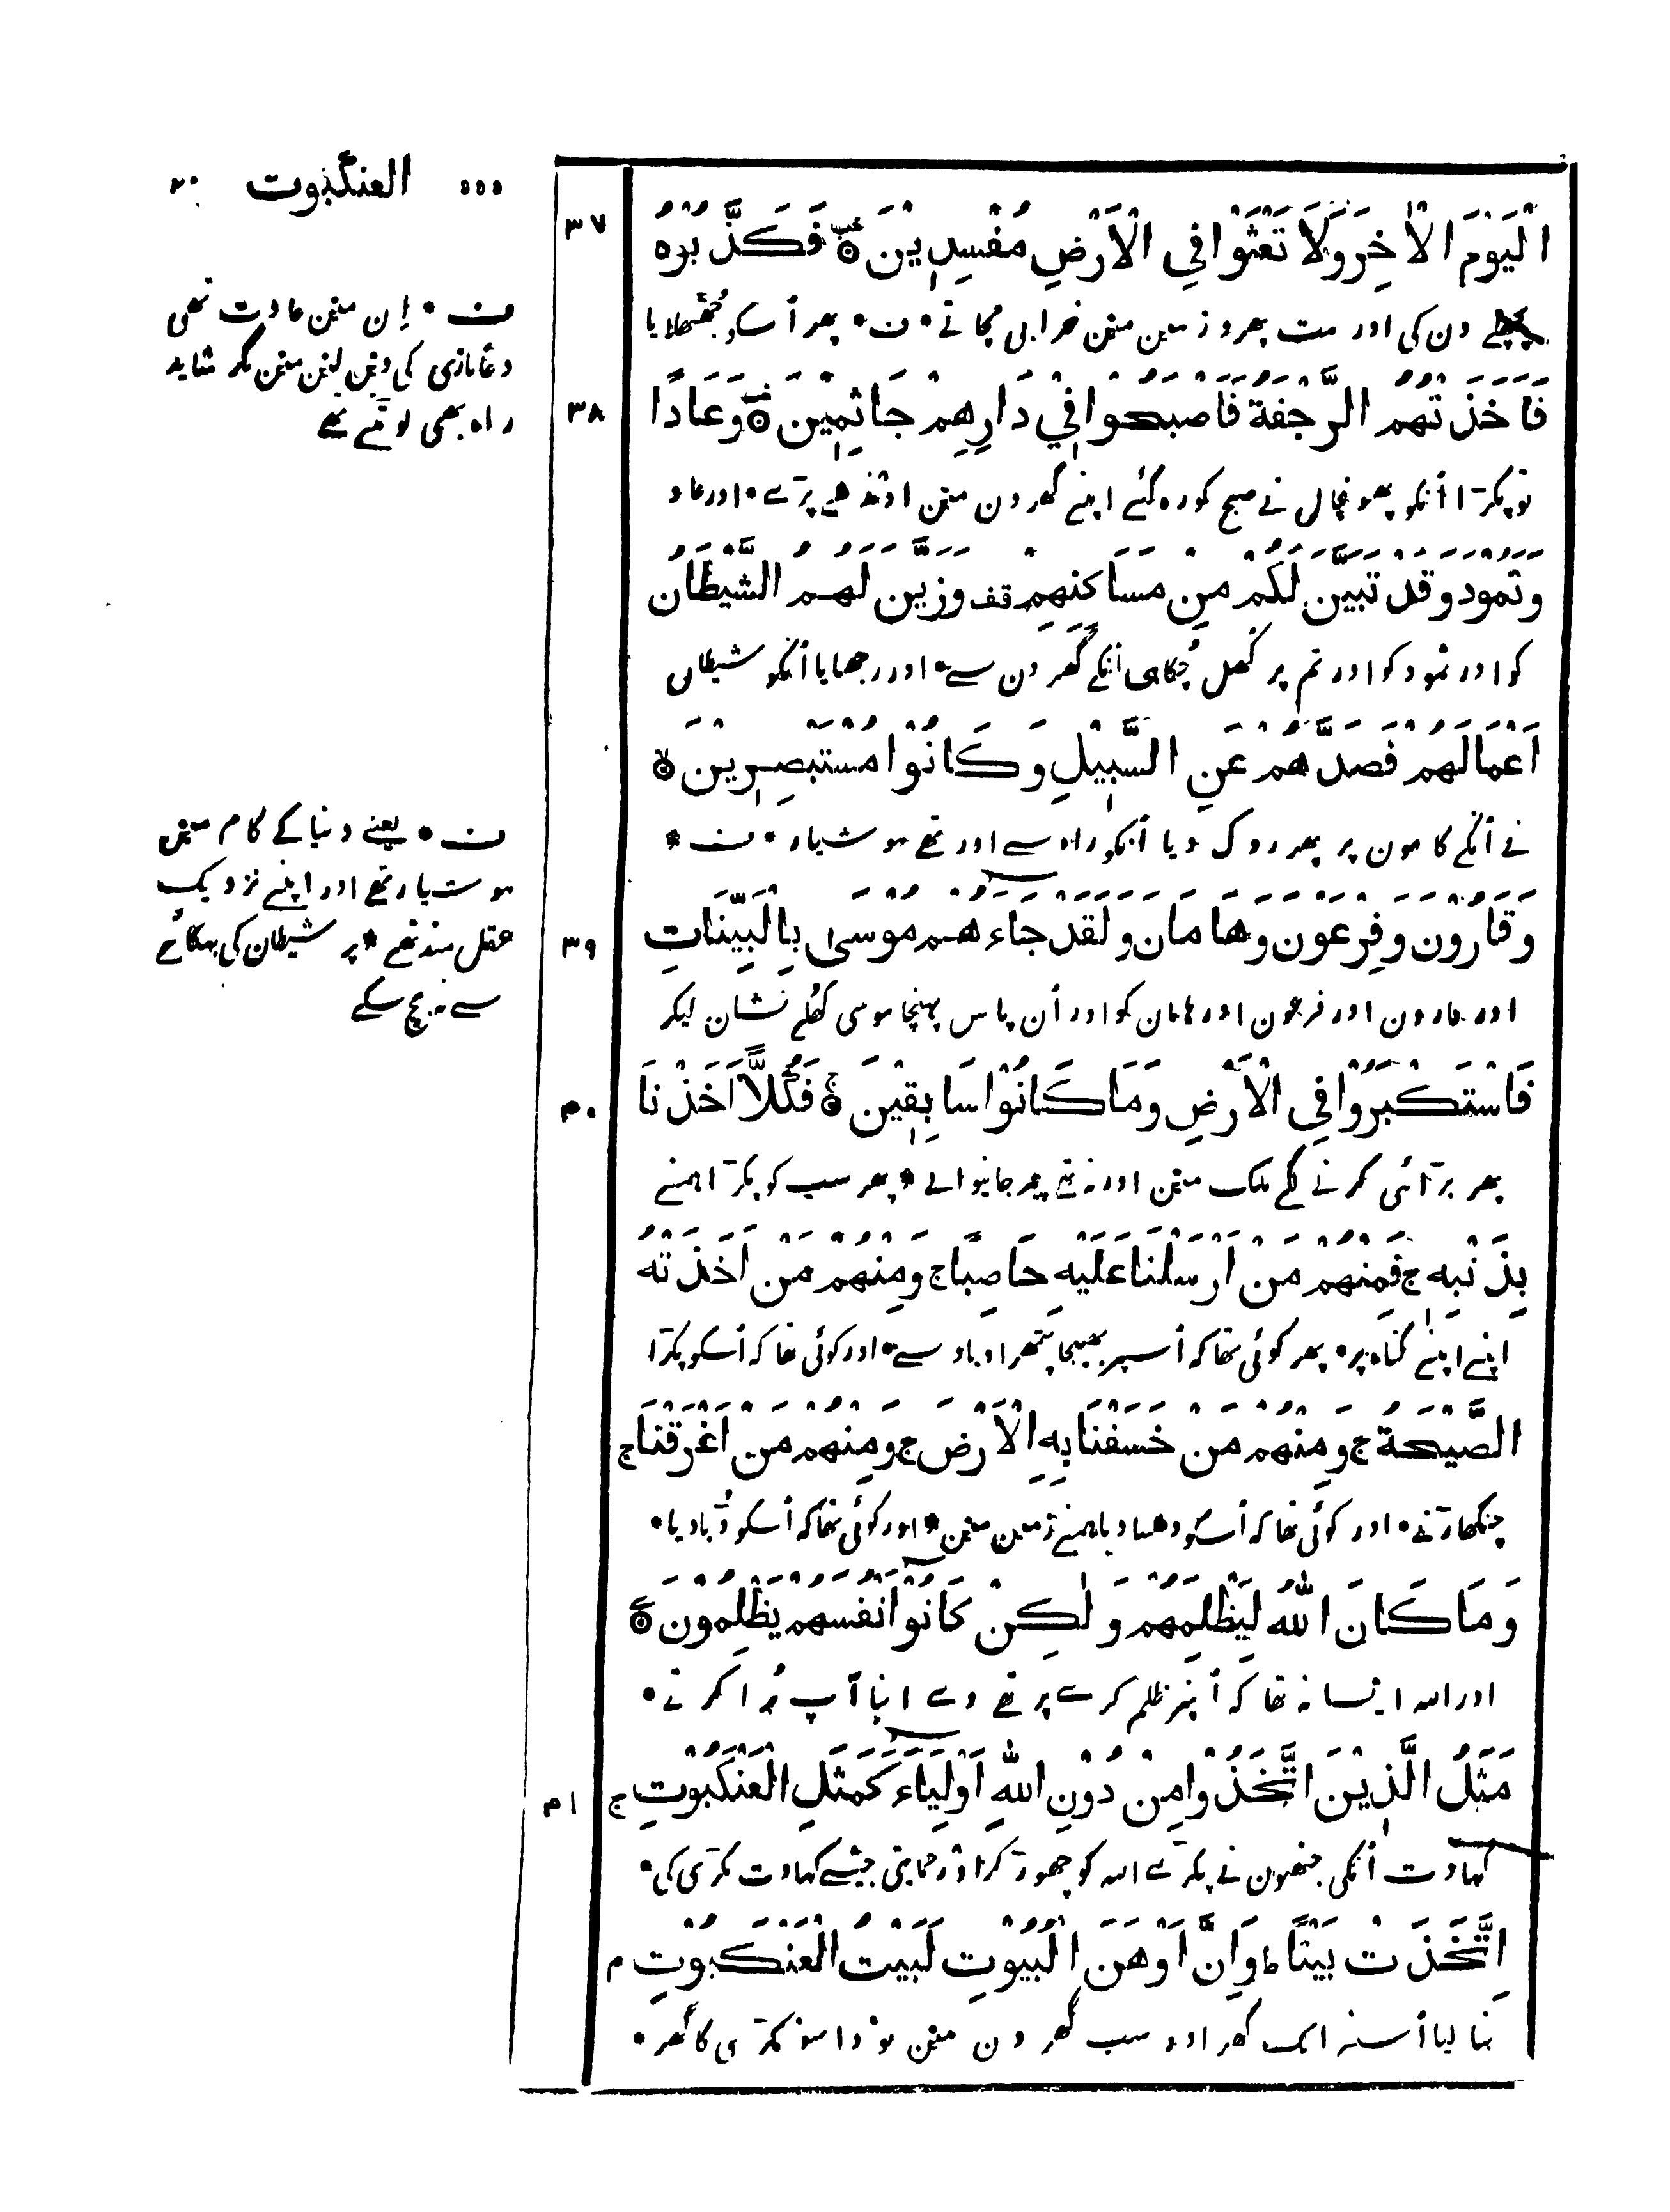 العنكبوت ٢٠
٣٧
الْيَوْمَ الْاٰخِرَ وَلَا تَعْثَوْا فِي الْاَرْضِ مُفْسِدِيْنَ فَكَذَّبُوْهُ
پچھلے دن کی اور مت پھرو زمین مین خرابی مچاتے • ف • پھر اُسکو جُھٹھلایا
٣٨
فَاَخَذَتْهُمُ الرَّجْفَةُ فَاَصْبَحُوْا فِيْ دَارِهِمْ جَاثِمِيْنَ وَعَادًا
تو پکڑا اُنکو بھونچال نے صبح کو رہ گئے اپنے گھرون مین اوندھے پڑے • اور عاد
وَثَمُوْدَ وَقَدْ تَبَيَّنَ لَكُمْ مِنْ مَسَاكِنِهِمْ قف وَزَيَّنَ لَهُمُ الشَّيْطَانُ
کو اور ثمود کو اور تم پر کُھل چُکا ہی اُنکے گھرون سے • اور رجھایا اُنکو شیطان
اَعْمَالَهُمْ فَصَدَّهُمْ عَنِ السَّبِيْلِ وَكَانُوْا مُسْتَبْصِرِيْنَ لا
نے اُنکے کامون پر پھر روک دیا اُنکو راہ سے اور تھے ہوشیار • ف *
٣٩
وَقَارُوْنَ وَفِرْعَوْنَ وَهَامَانَ وَلَقَدْ جَاءَهُمْ مُوْسٰى بِالْبَيِّنَاتِ
اور قارون اور فرعون اور ہامان کو اور اُن پاس پہنچا موسی کُھلے نشان لیکر
٤٠
فَاسْتَكْبَرُوْا فِي الْاَرْضِ وَمَا كَانُوْا سَابِقِيْنَ فَكُلًّا اَخَذْنَا
پھر بڑائی کرنے لگے ملک مین اور نہ تھے چہر جانیوالے * پھر سب کو پکڑا ہمنے
بِذَنْبِهٖ ج فَمِنْهُمْ مَنْ اَرْسَلْنَا عَلَيْهِ حَاصِبًا ج وَمِنْهُمْ مَنْ اَخَذَتْهُ
اپنے اپنے گناہ پر • پھر کوئی تھا کہ اُسپر بھیجا پتھراو باد سے • اور کوئی تھا کہ اُسکو پکڑا
الصَّيْحَةُ ج وَمِنْهُمْ مَنْ خَسَفْنَا بِهِ الْاَرْضَ ج وَمِنْهُمْ مَنْ اَغْرَقْنَا ج
چنگھاڑنے • اور کوئی تھا کہ اُسکو دھسا دیا ہمنے زمین مین * اور کوئی تھا کہ اُسکو ڈُبا دیا •
وَمَا كَانَ اللّٰهُ لِيَظْلِمَهُمْ وَلٰكِنْ كَانُوْٓا اَنْفُسَهُمْ يَظْلِمُوْنَ
اور اللہ ایسا نہ تھا کہ اُنپر ظلم کرے پر تھے وے اپنا آپ بُرا کرتے •
٤١
مَثَلُ الَّذِيْنَ اتَّخَذُوْا مِنْ دُوْنِ اللّٰهِ اَوْلِيَآءَ كَمَثَلِ الْعَنْكَبُوْتِ ج
کہاوت اُنکی جنھون نے پکڑے اللہ کو چھوڑ کر اور حمایتی جیسے کہاوت مکڑی کی •
اِتَّخَذَتْ بَيْتًا ط وَاِنَّ اَوْهَنَ الْبُيُوْتِ لَبَيْتُ الْعَنْكَبُوْتِ م
بنا لیا اُسنے ایک گھر اور سب گھرون مین بودا سو مکڑی کا گھر •
ف • اِن مین عادت تھی
دغابازی کی دینے لینے مین مگر شاید
راہ بھی لوٹتے تھے
ف • یعنے دنیا کے کام مین
ہوشیار تھے اور اپنے نزدیک
عقلمند تھے * پر شیطان کی بہکائے
سے نہ بچ سکے